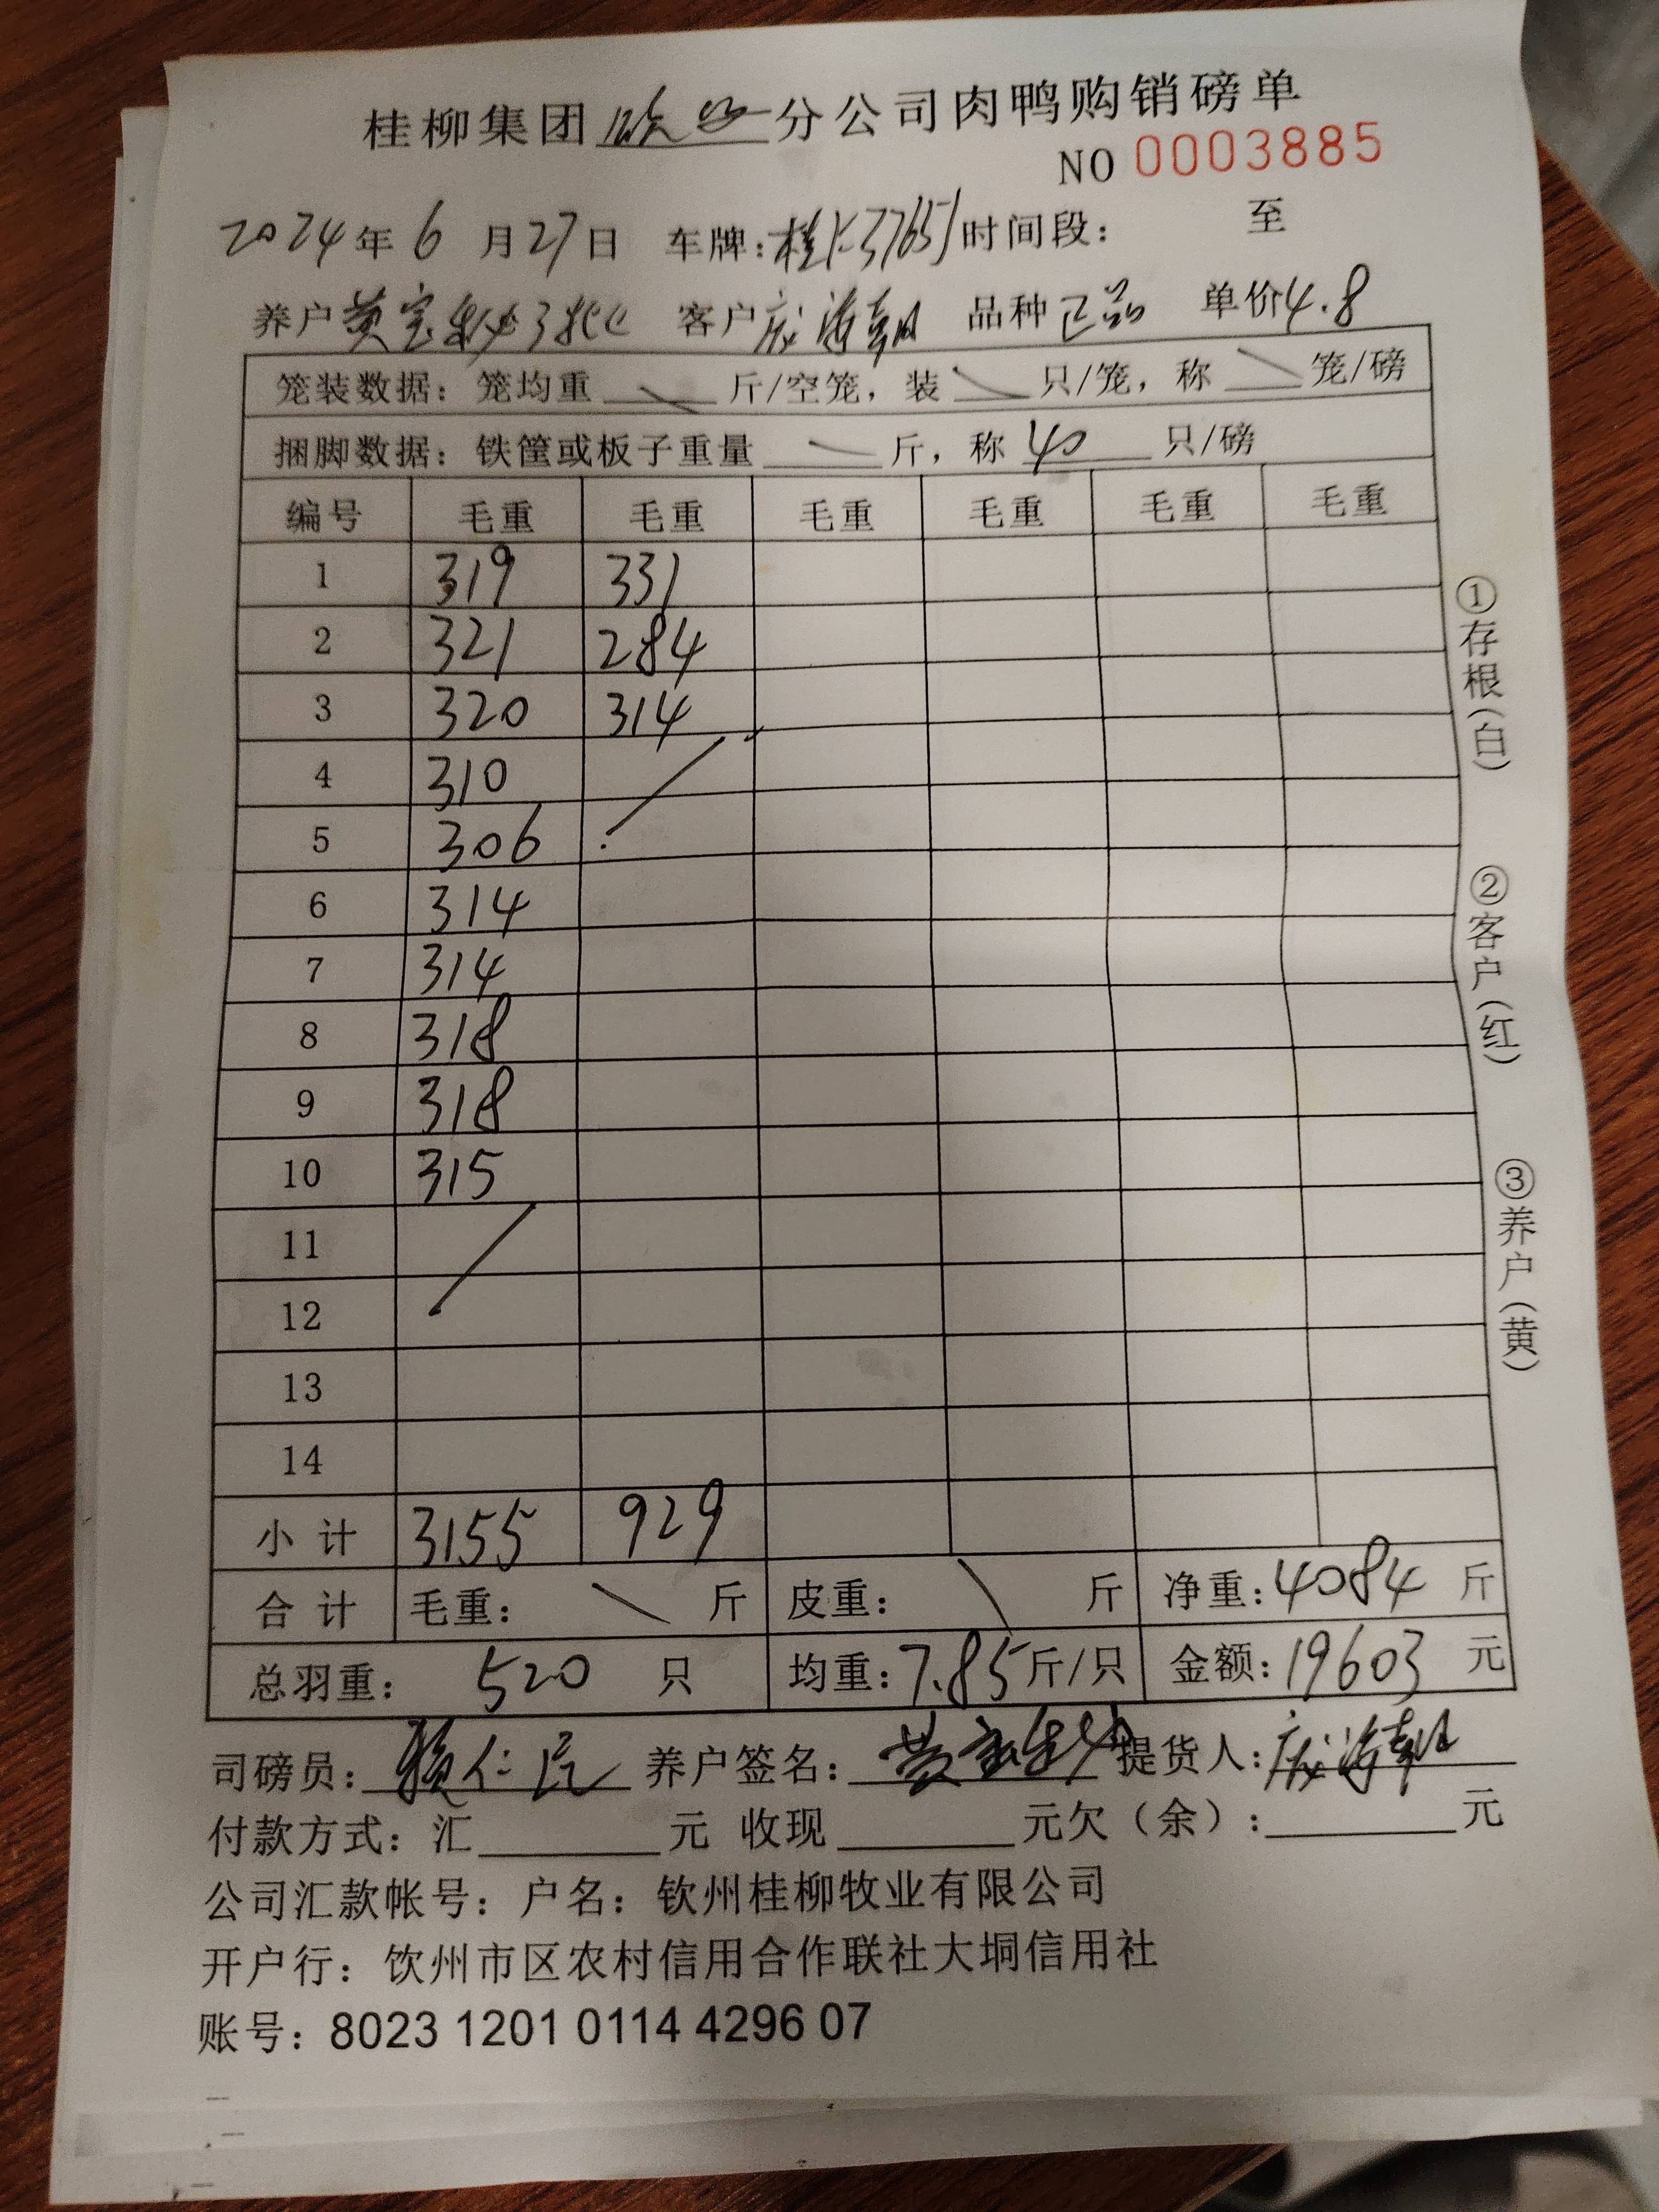 桂柳集团 钦州 分公司肉鸭购销磅单
NO 0003885
2024年6月27日 车牌:桂K37651 时间段: 至
养户 黄宝 3批 客户 庞海朝 品种 正品 单价4.8
笼装数据:笼均重 \ 斤/空笼,装 \ 只/笼,称 \ 笼/磅
捆脚数据:铁筐或板子重量 \ 斤,称 40 只/磅
编号 毛重 毛重 毛重 毛重 毛重 毛重
1 319 331
2 321 284
3 320 314
4 310
5 306
6 314
7 314
8 318
9 318
10 315
11
12
13
14
小计 3155 929
合计 毛重: \ 斤 皮重: \ 斤 净重:4084 斤
总羽重: 520 只 均重:7.85斤/只 金额:19603 元
司磅员: 仁 养户签名: 黄宝 提货人:庞海朝
付款方式:汇 元 收现 元欠(余): 元
公司汇款帐号:户名:钦州桂柳牧业有限公司
开户行:饮州市区农村信用合作联社大垌信用社
账号:8023 1201 0114 4296 07
①存根(白)
②客户(红)
③养户(黄)